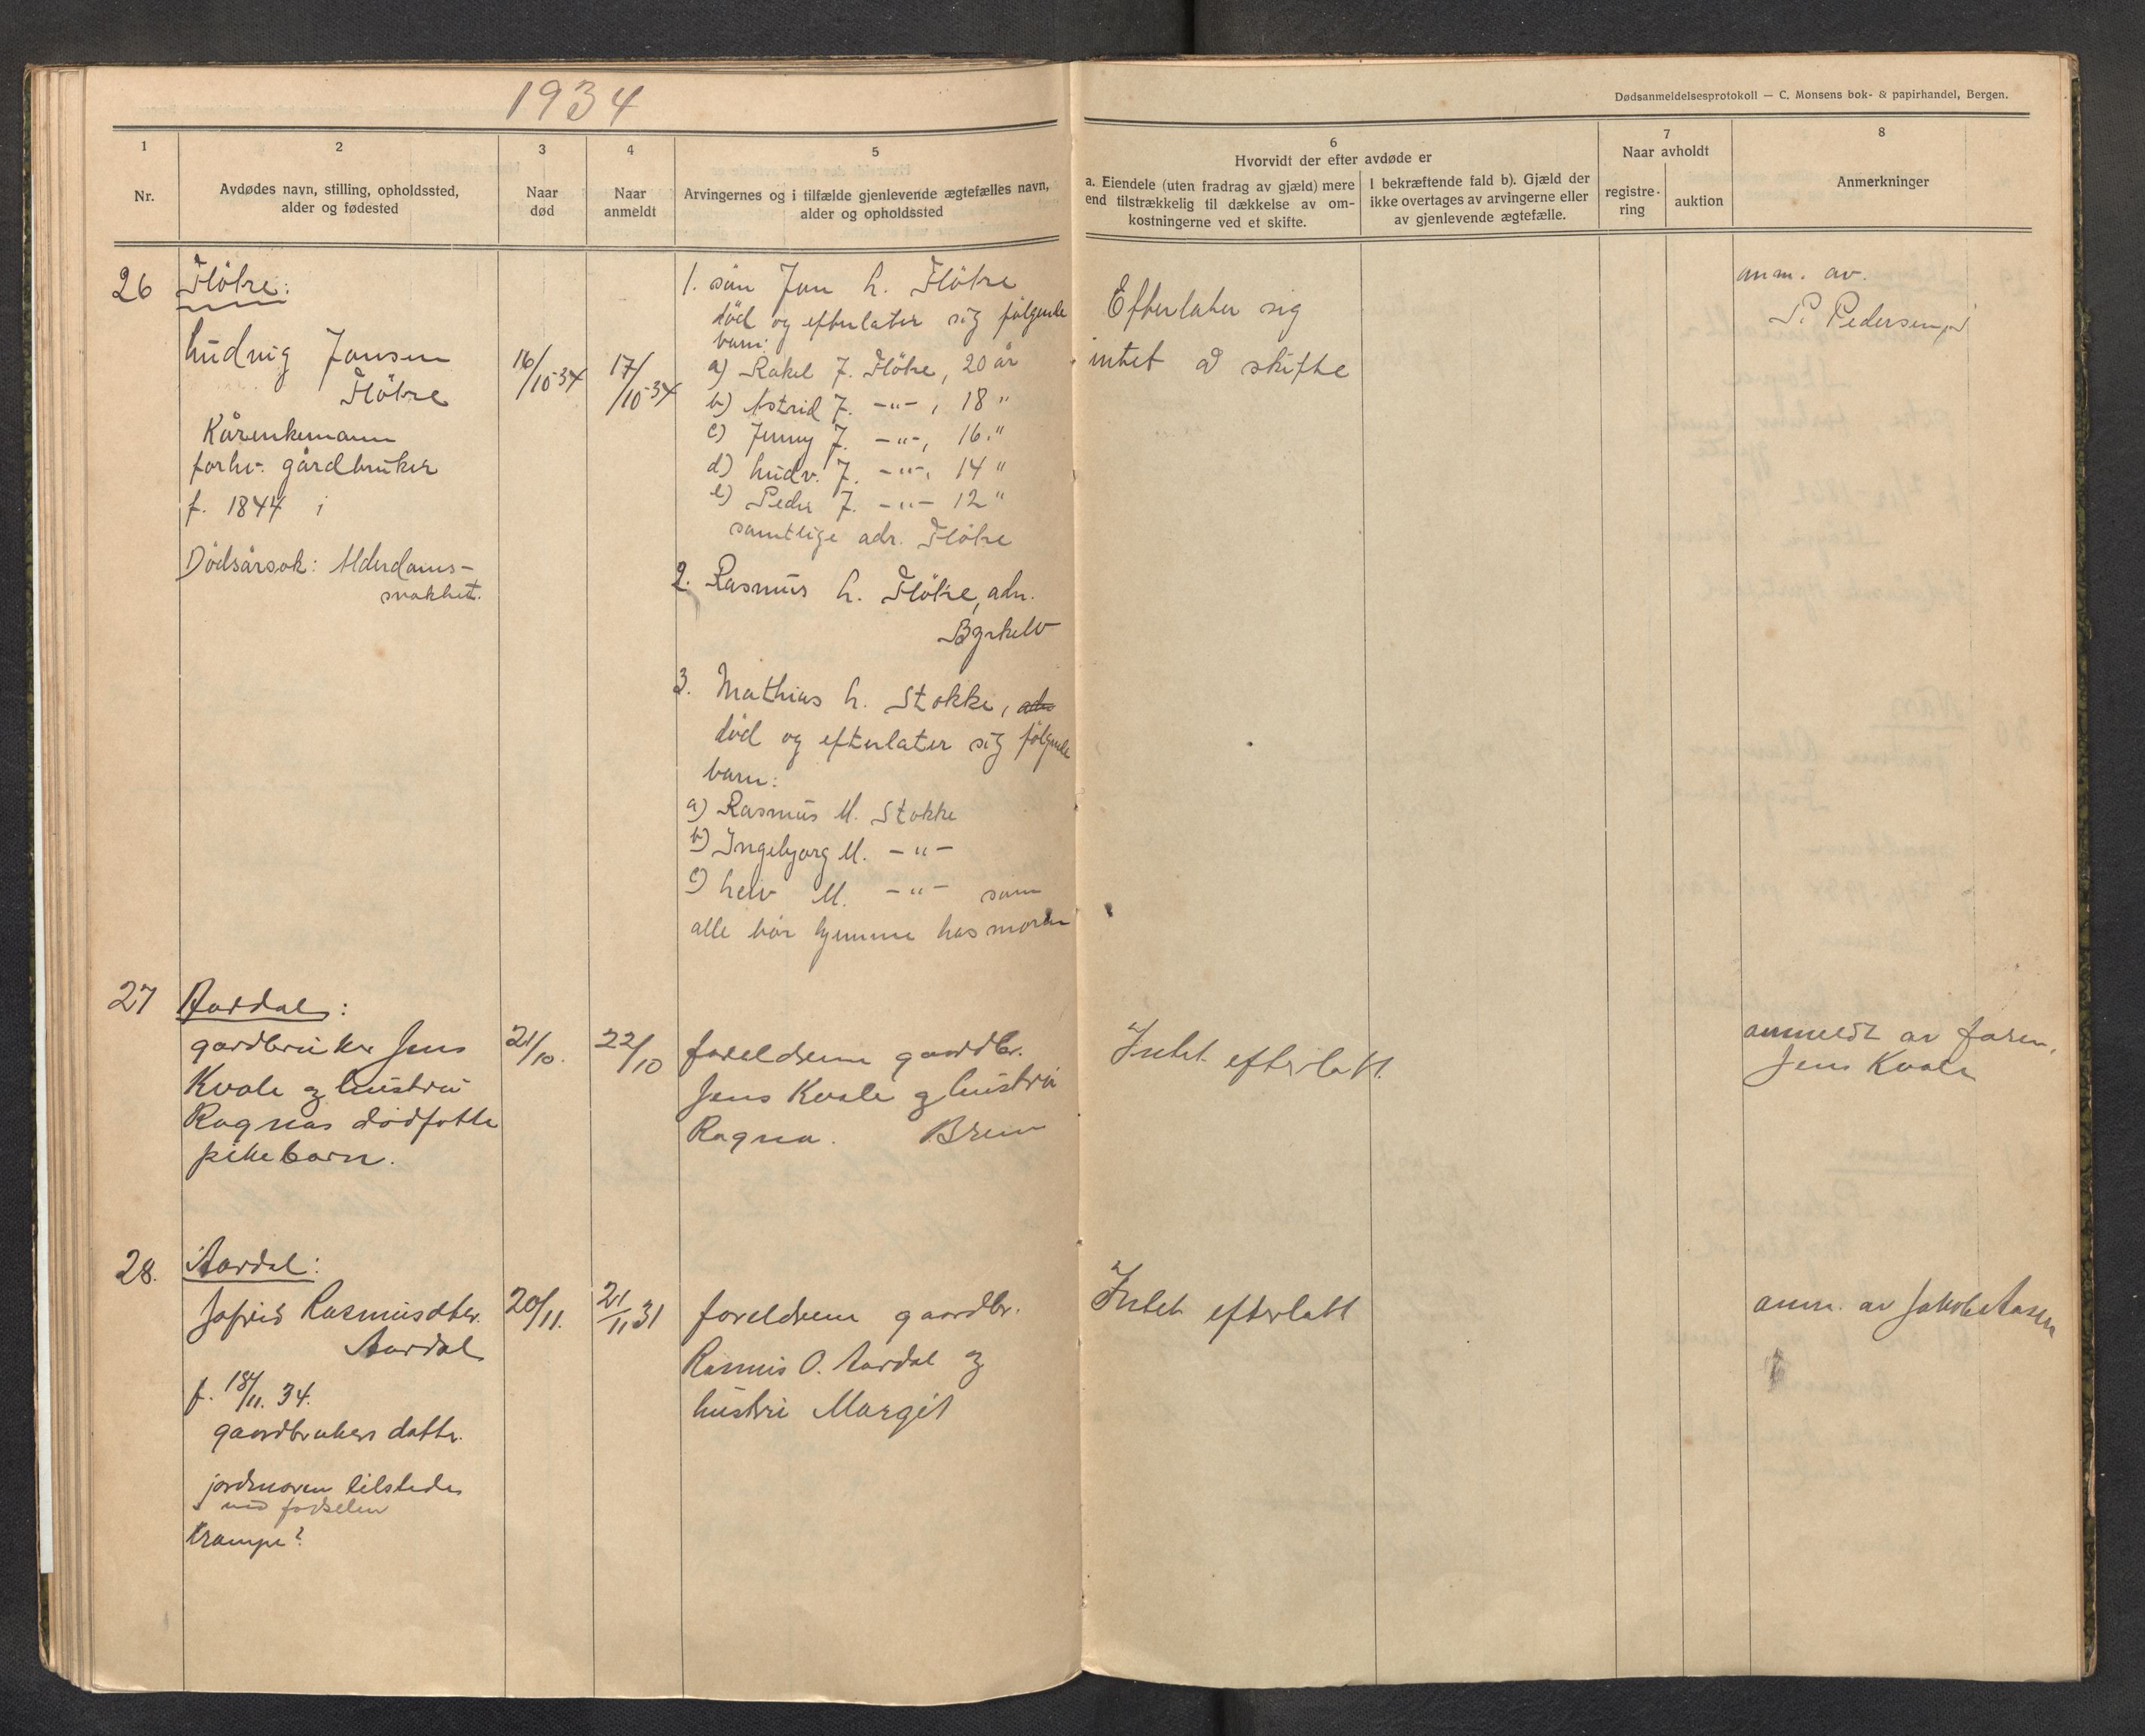 1934
Dødsanmeldelsesprotokoll — C. Monsens bok- & papirhandel, Bergen.
1
Nr.
2
Avdødes navn, stilling, opholdssted,
alder og fødested
3
Naar
død
4
Naar
anmeldt
5
Arvingernes og i tilfælde gjenlevende ægtefælles navn,
alder og opholdssted
6
Hvorvidt der efter avdøde er
a. Eiendele (uten fradrag av gjæld) mere
end tilstrækkelig til dækkelse av om-
kostningerne ved et skifte.
I bekræftende fald b). Gjæld der
ikke overtages av arvingerne eller
av gjenlevende ægtefælle.
7
Naar avholdt
registre-
ring
auktion
8
Anmerkninger
26
Flötre:
Ludvig Jonsen
Flötre
Kårenkemann
forhv. gårdbruker
f. 1844 i
Dödsårsok: Alderdoms-
svakhet.
16/10-34
17/10-34
1. sön Jon L. Flötre
död og efterlater sig følgende
barn:
a) Rakel J. Flötre, 20 år
b) Astrid J. -"-, 18 "
c) Jenny J. -"-, 16."
d) Ludv. J. -"-, 14 "
e) Peder J. -"- 12 "
samtlige adr. Flötre
2. Rasmus L. Flötre, adr.
Byrkelo
3. Mathias L. Stokke, adr
död og efterlater sig følgende
barn:
a) Rasmus M. Stokke
b) Ingebjorg M. -"-
c) Leiv M. -"- som
alle bor hjemme hos moren
Efterlater sig
intet å skifte
anm. av.
P. Pedersen
27
Aardal:
gardbruker Jens
Kvale og hustru
Ragnas dødfødte
pikebarn.
21/10.
22/10
foreldrene gaardbr.
Jens Kvale og hustru
Ragna. Breim
Intet efterlatt.
anmeldt av faren,
Jens Kvale
28.
Aardal:
Rasmusdtr.
Aardal
f. 18/11. 34.
gaardbrukers datter.
jordmoren tilstede
ved fødselen
krampe?
20/11.
21/11 31
foreldrene gaardbr.
Rasmus O. Aardal og
hustru Margit
Intet efterlatt
anm. av Jakob Aasen